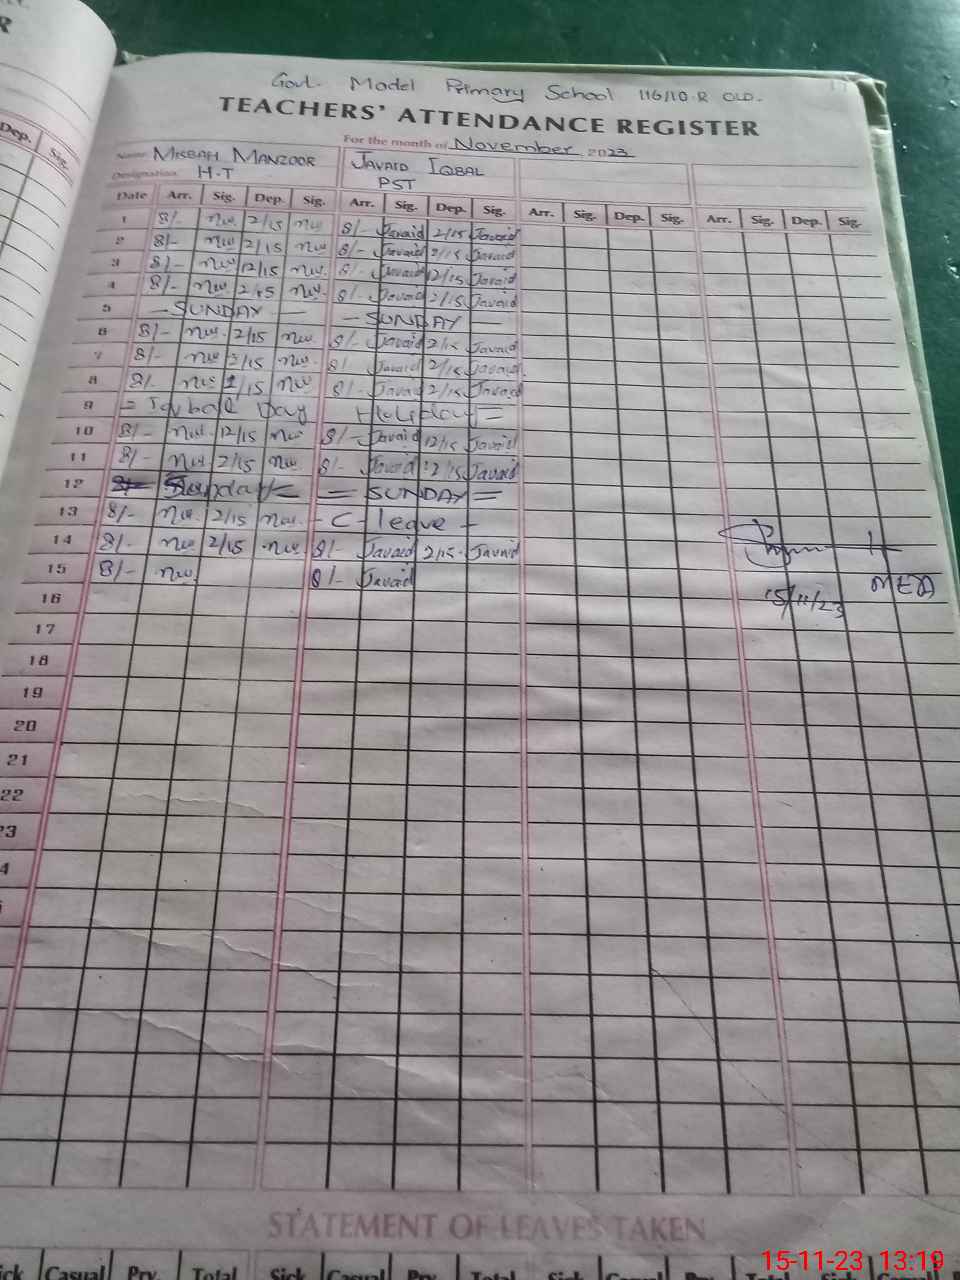 R
Govt. Model Primary School 116/10.R OLD.
TEACHERS' ATTENDANCE REGISTER
For the month of November 2023
Name MISBAH MANZOOR JAVAID IQBAL
Designation H.T PST
Dep. Sig.
Date Arr. Sig. Dep. Sig. Arr. Sig. Dep. Sig. Arr. Sig. Dep. Sig. Arr. Sig. Dep. Sig.
1 8/- 2/15 8/- Javaid 2/15 Javaid
2 8/- 2/15 8/- Javaid 2/15 Javaid
3 8/- 12/15 8/- Javaid 12/15 Javaid
4 8/- 2/15 8/- Javaid 2/15 Javaid
5 — SUNDAY — — SUNDAY —
6 8/- 2/15 8/- Javaid 2/15 Javaid
7 8/- 2/15 8/- Javaid 2/15 Javaid
8 8/- 2/15 8/- Javaid 2/15 Javaid
9 = Iqbal Day Holiday =
10 8/- 12/15 8/- Javaid 12/15 Javaid
11 8/- 2/15 8/- Javaid 12/15 Javaid
12 Sunday = = SUNDAY =
13 8/- 2/15 - C - leave -
14 8/- 2/15 8/- Javaid 2/15 Javaid
15 8/- 8/- Javaid
MEA
15/11/23
16
17
18
19
20
21
22
23
4
STATEMENT OF LEAVES TAKEN
Sick Casual Prv. Total Sick Casual Prv. Total Sick Casual Prv. Total Sick
15-11-23 13:19